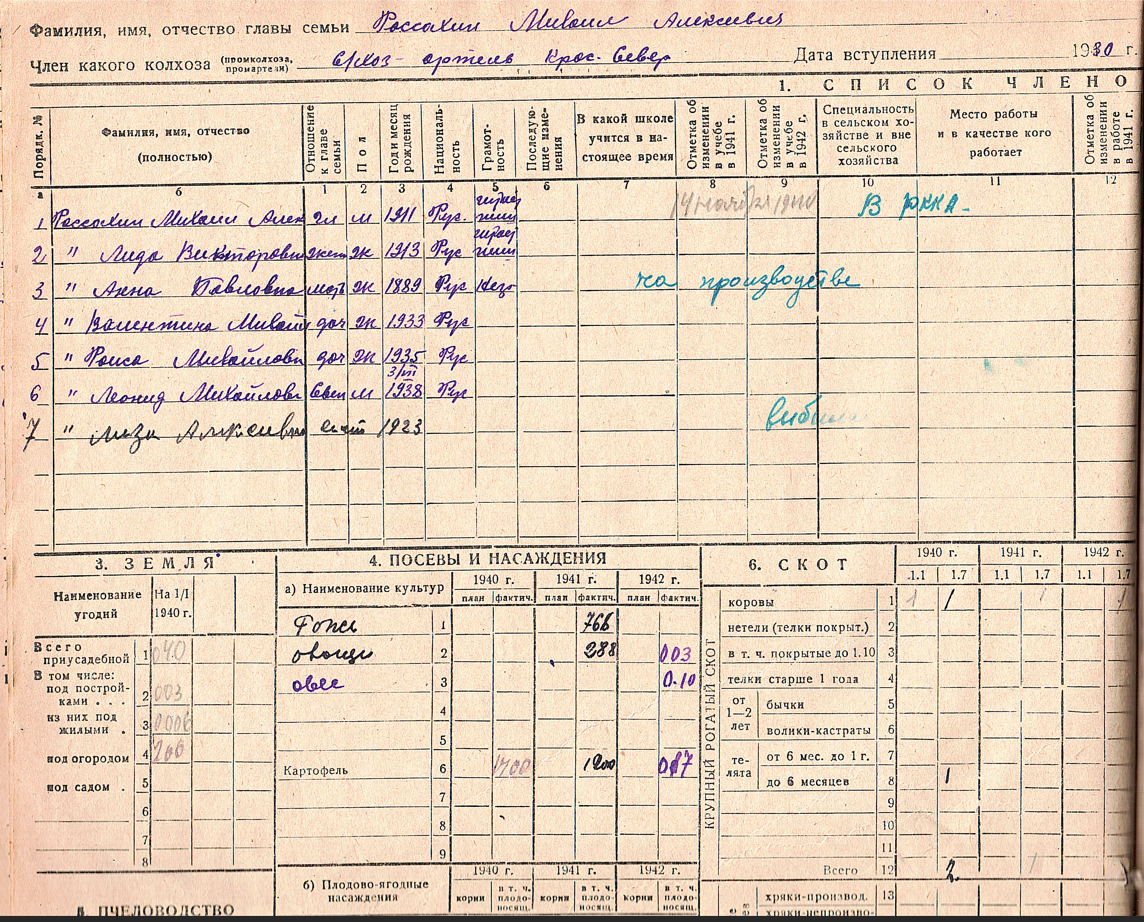 Фамилия, имя, отчество главы семьи Россохин Михаил Алексеевич
Член какого колхоза (промколхоза, промартели) с/хоз- артель Крас. Север Дата вступления 1930 г.
1. СПИСОК ЧЛЕНО
Порядк. № Фамилия, имя, отчество (полностью) Отношение к главе семьи Пол Год и месяц рождения Националь-ность Грамот-ность Последую-щие изме-нения В какой школе учится в на-стоящее время Отметка об изменении в учебе в 1941 г. Отметка об изменении в учебе в 1942 г. Специальность в сельском хо-зяйстве и вне сельского хозяйства Место работы и в качестве кого работает Отметка об изменении в работе в 1941 г.
а б 1 2 3 4 5 6 7 8 9 10 11 12
1 Россохин Михаил Алек гл м 1911 Рус. 14 ноября 1940 В РККА-
2 " Лида Викторовн жен ж 1913 Рус
3 " Анна Павловна мать ж 1889 Рус на производстве
4 " Валентина Михай доч ж 1933 Рус
5 " Раиса Михайловн доч ж 1935 Рус
6 " Леонид Михайлови м 3/III 1938 Рус
7 " Лиза Алексеевн сест 1923 выбыл
3. ЗЕМЛЯ
Наименование угодий На 1/I 1940 г.
Всего приусадебной 1 040
В том числе:
под построй-ками . . . 2 003
из них под жилыми . 3 0006
под огородом 4 200
под садом . 5
6
7
8
5. ПЧЕЛОВОДСТВО
4. ПОСЕВЫ И НАСАЖДЕНИЯ
а) Наименование культур 1940 г. 1941 г. 1942 г.
план фактич. план фактич. план фактич.
1 766
овощи 2 288 003
овес 3 0.10
4
5
Картофель 6 1700 1200 017
7
8
9
б) Плодово-ягодные насаждения 1940 г. 1941 г. 1942 г.
корни в т. ч. плодо-носящ. корни в т. ч. плодо-носящ. корни в т. ч. плодо-носящ.
6. СКОТ
1940 г. 1941 г. 1942 г.
1.1 1.7 1.1 1.7 1.1 1.7
КРУПНЫЙ РОГАТЫЙ СКОТ
коровы 1 1 1 1 1
нетели (телки покрыт.) 2
в т. ч. покрытые до 1.10 3
телки старше 1 года 4
от 1—2 лет бычки 5
волики-кастраты 6
те-лята от 6 мес. до 1 г. 7
до 6 месяцев 8 1
9
10
11
Всего 12 2. 1
хряки-производ. 13
хряки-непроизво-